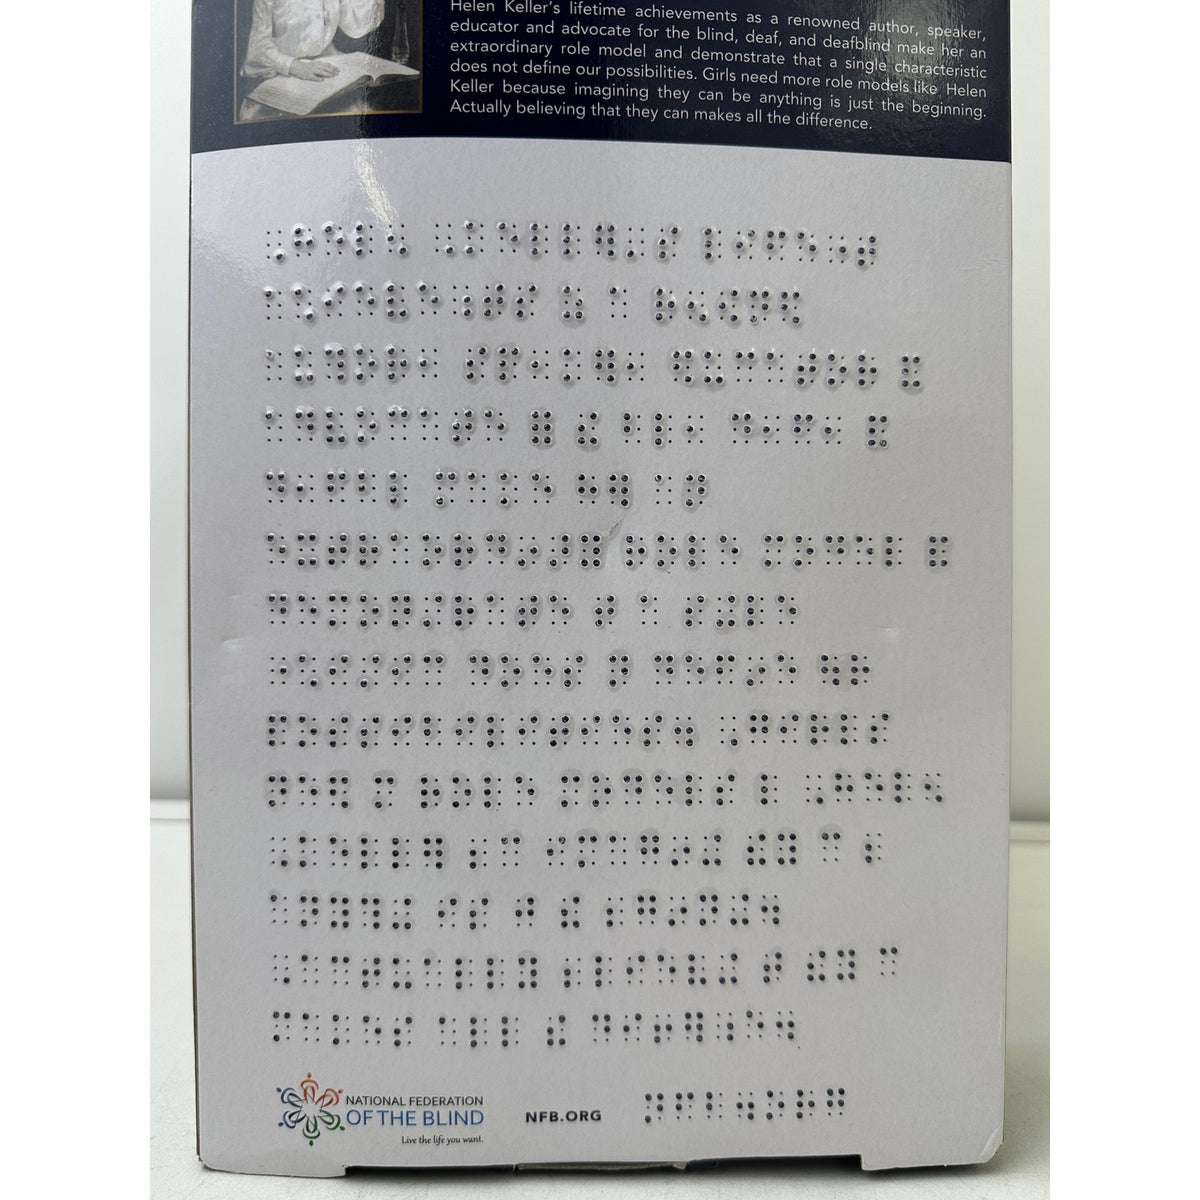 Helen Keller's lifetime achievements as a renowned author, speaker,
educator and advocate for the blind, deaf, and deafblind make her an
extraordinary role model and demonstrate that a single characteristic
does not define our possibilities. Girls need more role models like Helen
Keller because imagining they can be anything is just the beginning.
Actually believing that they can makes all the difference.
⠠⠓⠑⠇⠢ ⠠⠅⠑⠇⠇⠻⠄⠎ ⠇⠊⠋⠑⠐⠞
⠁⠡⠊⠑⠧⠑⠰⠞⠎ ⠵ ⠁ ⠗⠢⠪⠝⠫
⠁⠥⠹⠕⠗⠂ ⠎⠏⠂⠅⠻⠂ ⠫⠥⠉⠁⠞⠕⠗ ⠯
⠁⠙⠧⠕⠉⠁⠞⠑ ⠿ ⠮ ⠃⠇⠂ ⠙⠂⠋⠂ ⠯
⠙⠂⠋⠃⠇ ⠍⠁⠅⠑ ⠓⠻ ⠁⠝
⠑⠭⠞⠗⠁⠕⠗⠙⠔⠜⠽ ⠗⠕⠇⠑ ⠍⠕⠙⠑⠇ ⠯
⠙⠑⠍⠕⠝⠌⠗⠁⠞⠑ ⠞ ⠁ ⠎⠬⠇⠑
⠐⠡⠊⠌⠊⠉ ⠙⠕⠑⠎ ⠝ ⠙⠑⠋⠔⠑ ⠳⠗
⠏⠕⠎⠎⠊⠃⠊⠇⠊⠞⠊⠑⠎⠲ ⠠⠛⠊⠗⠇⠎
⠝⠑⠫ ⠍ ⠗⠕⠇⠑ ⠍⠕⠙⠑⠇⠎ ⠇ ⠠⠓⠑⠇⠢
⠠⠅⠑⠇⠇⠻ ⠆⠉ ⠊⠍⠁⠛⠔⠬ ⠮⠽ ⠉ ⠆
⠁⠝⠽⠹⠬ ⠊⠎ ⠚ ⠮ ⠆⠛⠔⠝⠬⠲
⠠⠁⠉⠞⠥⠁⠇⠇⠽ ⠆⠇⠊⠑⠧⠬ ⠞ ⠮⠽ ⠉
⠍⠁⠅⠑⠎ ⠁⠇⠇ ⠮ ⠙⠊⠖⠻⠰⠑⠲
NATIONAL FEDERATION
OF THE BLIND
Live the life you want.
NFB.ORG
⠝⠋⠃⠲⠕⠗⠛